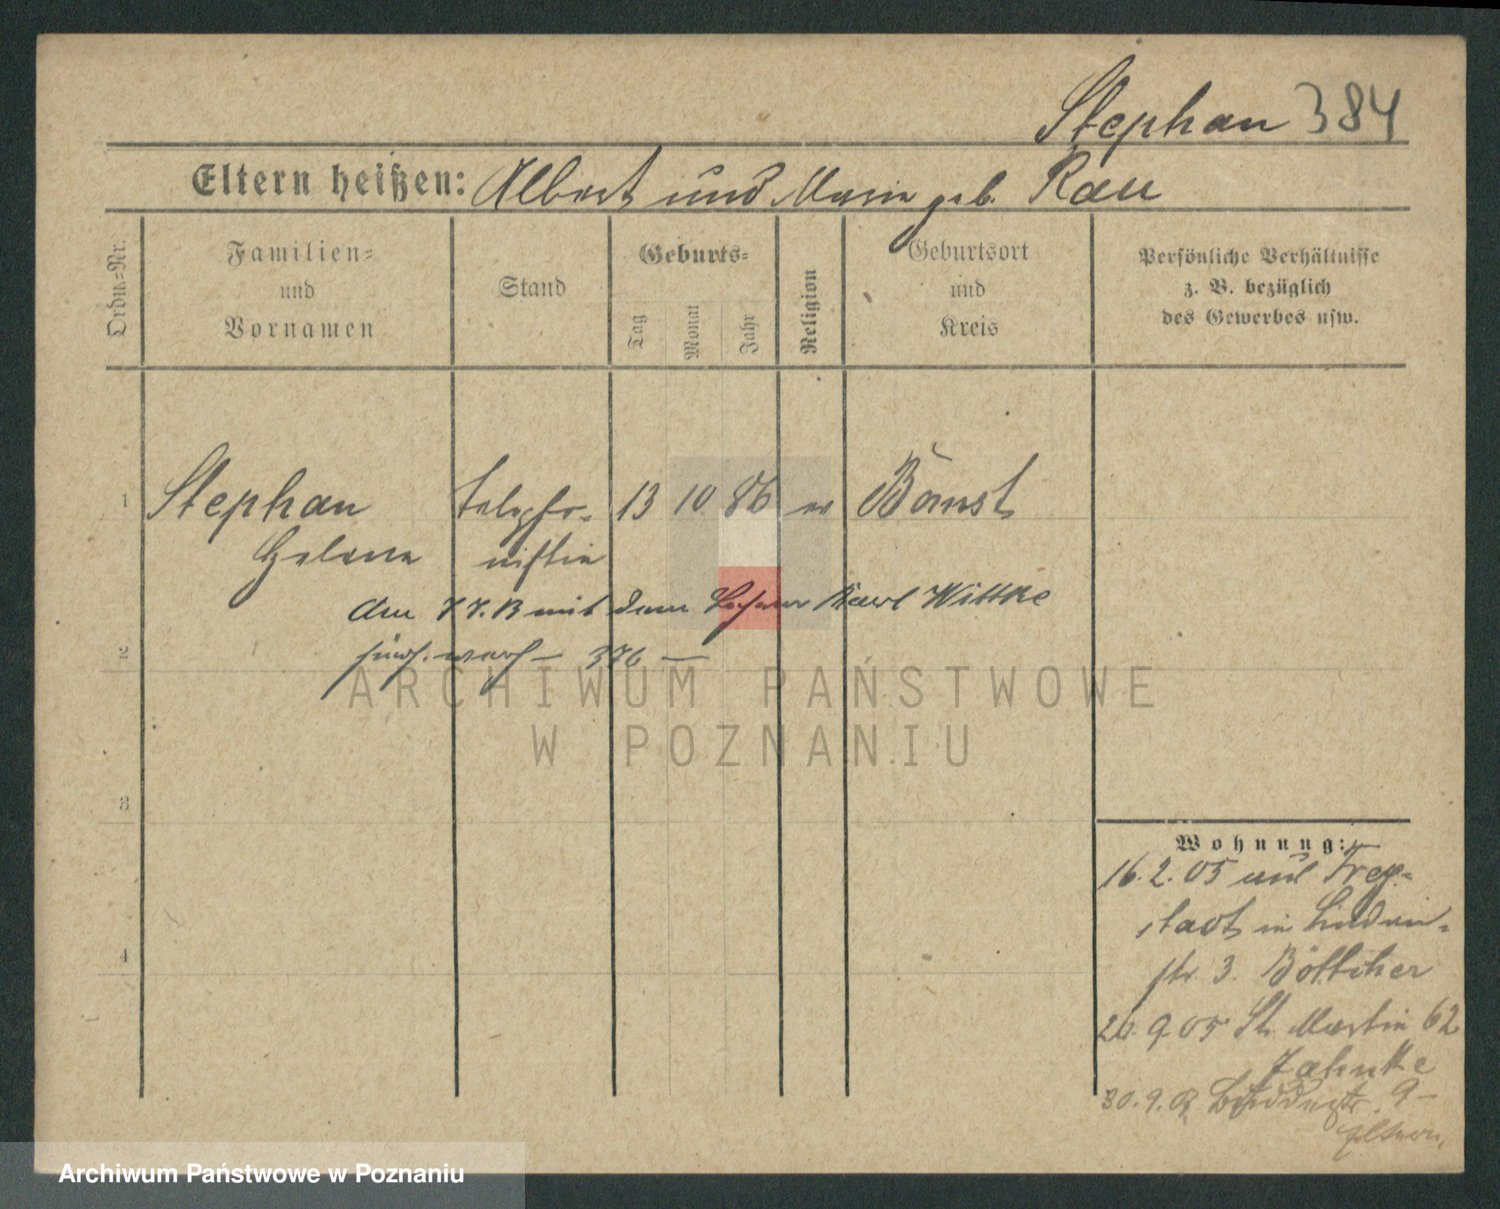 Stephan 384
Eltern heißen: Albert und Marie geb. Rau
Ordn.=Nr.
Familien=
und
Vornamen
Stand
Geburts=
Tag
Monat
Jahr
Religion
Geburtsort
und
Kreis
Persönliche Verhältnisse
z. B. bezüglich
des Gewerbes usw.
1 Stephan telepho- 13 10 86 ev Bomst
Helene nistin
den 7.7.13 mit dem Lehrer Karl Wittke
2
376 —
ARCHIWUM PAŃSTWOWE
W POZNANIU
3
4
Wohnung:
16.2.05 aus Frey-
stadt in Linden-
str 3. Böttcher
20.9.05 St. Martin 62
Jahnke
30.9. 9 –
Eltern
Archiwum Państwowe w Poznaniu